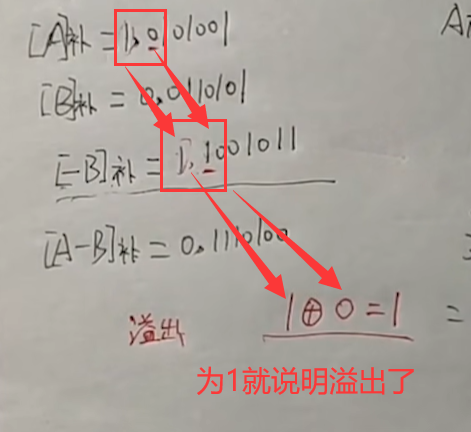 [A]补 = 1.0101001
[B]补 = 0.0110101
[-B]补 = 1.1001011
[A-B]补 = 0.1110100
溢出 1⊕0=1 =
为1就说明溢出了